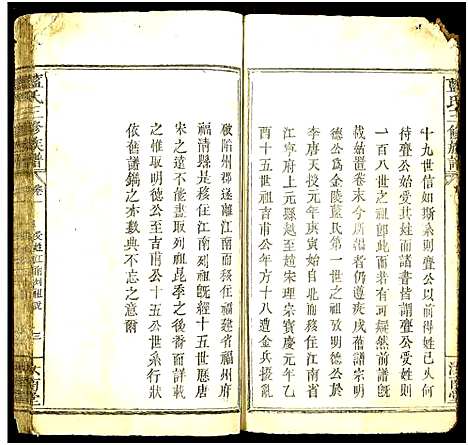 藍氏三修族譜
十九世信如斯桑則亹公以前得姓已久何
待亹公始受其姓而諸書皆謂亹公受姓則
一百八之祖郎此而可據者尚遺世系前譜旣
載始置卷末今所偕者仍遵戌舊譜宗明
德公爲金陵藍氏第一世之祖攷明德公於
李唐天授元年庚寅始自北而移江南省
江寧府上元縣趙宋理宗寶慶元年乙
酉十五世祖吉甫公年方十八遭金兵擾亂
破陷州郡遂離江南移居福建省福州府
福清縣是移住江南列祖旣經十五世歷唐
宋之遠不能盡取列祖昆季之後裔而錄
之惟取明德公至吉甫公十五公世系行狀
依舊譜鐫之亦數典不忘之意爾
藍氏三修族譜
卷一
受姓江南列祖說
三
汝南堂